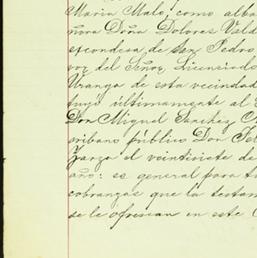 Maria Malo, como alba
ñora Doña Dolores Vald
excondesa de San Pedro
voz del Señor Licenciado
Uranga de esta vecindad
tuyó últimamente al
Don Miguel Sanchez
cribano público Don Fel
Garza el veintisiete de
año: es general para to
cobranzas que la testam
se le ofrescan en este